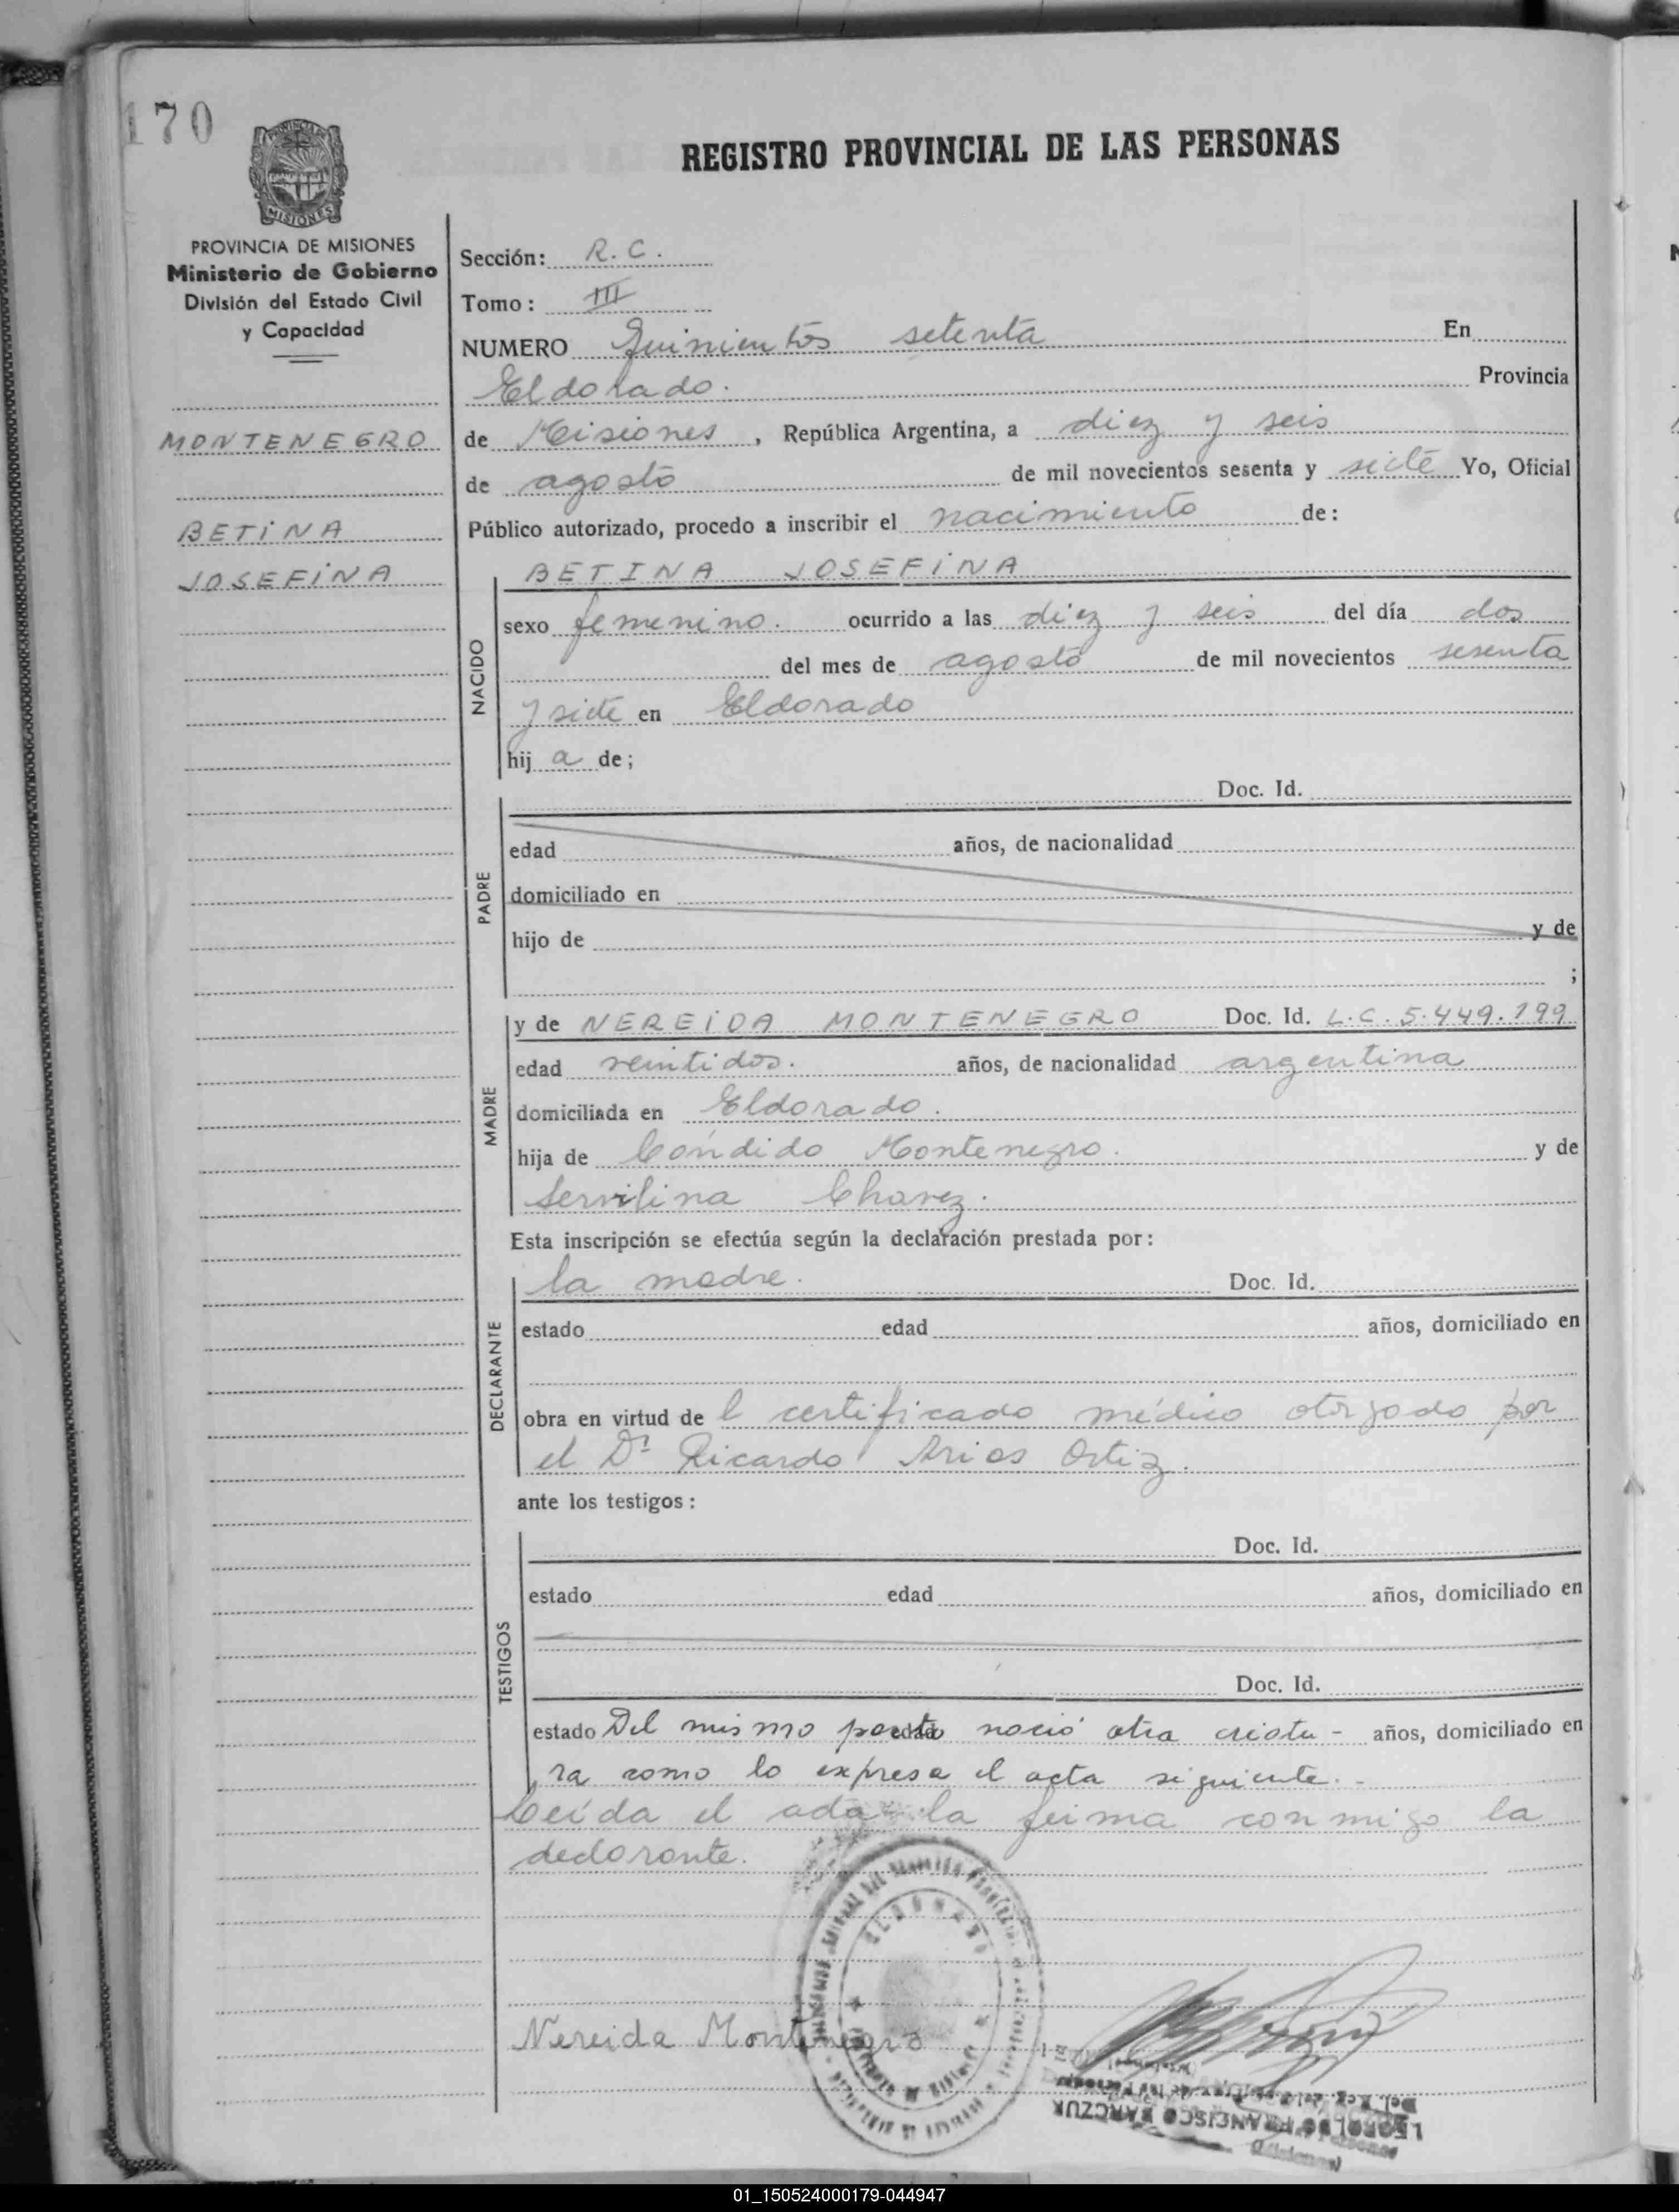 170
REGISTRO PROVINCIAL DE LAS PERSONAS
PROVINCIA DE
MISIONES
PROVINCIA DE MISIONES
Ministerio de Gobierno
División del Estado Civil
y Capacidad
MONTENEGRO
BETINA
JOSEFINA
Sección: R. C.
Tomo: III
NUMERO Quinientos setenta En
Eldorado. Provincia
de Misiones, República Argentina, a diez y seis
de agosto de mil novecientos sesenta y siete Yo, Oficial
Público autorizado, procedo a inscribir el nacimiento de:
NACIDO
BETINA JOSEFINA
sexo femenino. ocurrido a las diez y seis del día dos
del mes de agosto de mil novecientos sesenta
y siete en Eldorado
hij a de;
PADRE
Doc. Id.
edad años, de nacionalidad
domiciliado en
hijo de y de
;
MADRE
y de NEREIDA MONTENEGRO Doc. Id. L.C. 5.449.199
edad veintidos. años, de nacionalidad argentina
domiciliada en Eldorado.
hija de Cándido Montenegro. y de
Servilina Chavez.
Esta inscripción se efectúa según la declaración prestada por:
DECLARANTE
la madre. Doc. Id.
estado edad años, domiciliado en
obra en virtud de l certificado médico otorgado por
el Dr Ricardo Arias Ortiz.
ante los testigos:
TESTIGOS
Doc. Id.
estado edad años, domiciliado en
Doc. Id.
estado Del mismo parto edad nació otra criatu- años, domiciliado en
ra como lo expresa el acta siguiente.-
Leída el acta la firma conmigo la
declarante.
ELDORADO
Nereida Montenegro
LEOPOLDO FRANCISCO BARCZUK
01_150524000179-044947